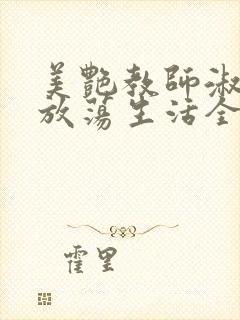 美艷教師淑
放蕩生活全
霍里